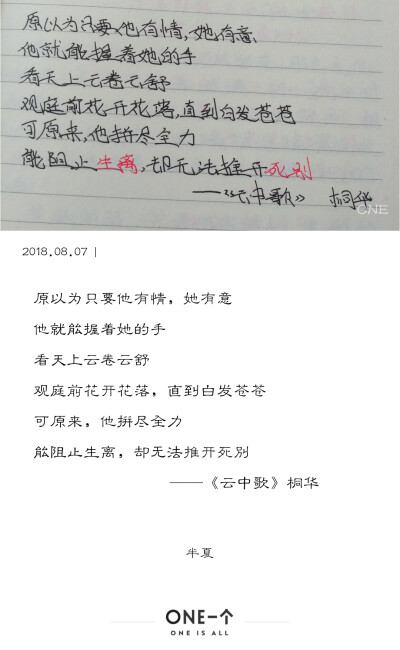 原以为只要他有情,她有意
他就能握着她的手
看天上云卷云舒
观庭前花开花落,直到白发苍苍
可原来,他拼尽全力
能阻止生离,却无法推开死别
——《云中歌》 桐华
ONE
2018.08.07 |
原以为只要他有情，她有意
他就能握着她的手
看天上云卷云舒
观庭前花开花落，直到白发苍苍
可原来，他拼尽全力
能阻止生离，却无法推开死别
——《云中歌》桐华
半夏
ONE一个
ONE IS ALL